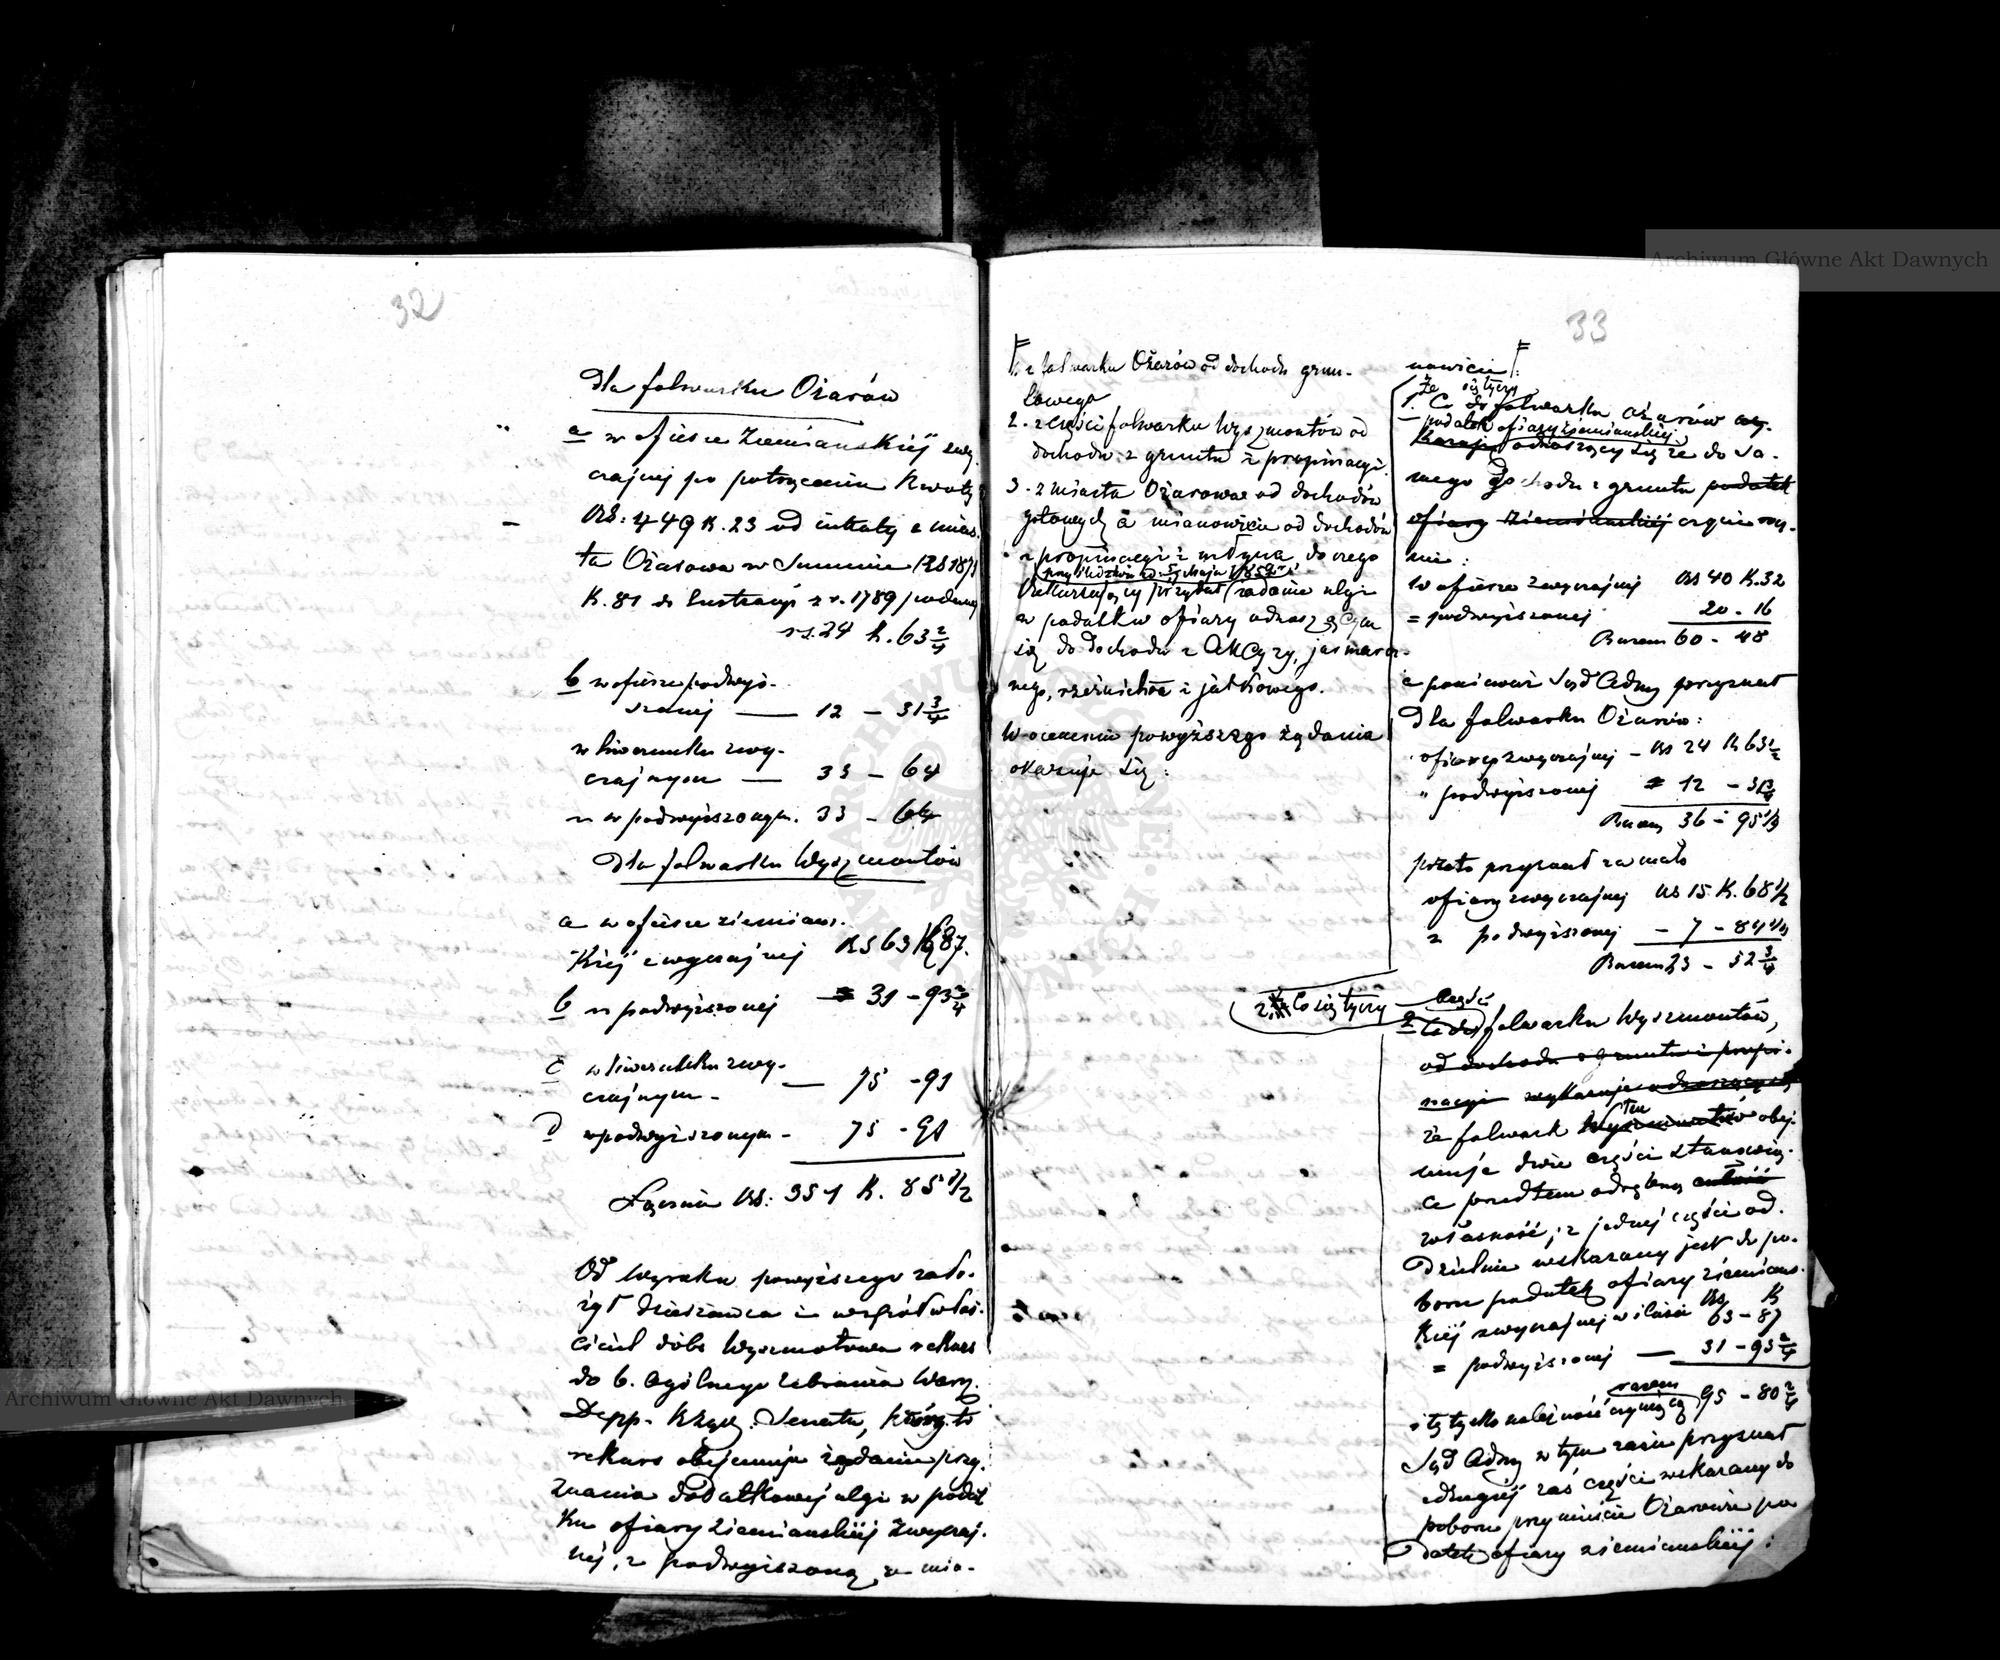 32
Dla folwarku Ożarów
a w ofierze Ziemiańskiéj zwy-
czajnej po potrąceniu kwoty
RS: 449 K. 23 od intraty z mias-
ta Ożarowa w Summie RS 1871
K. 81 do lustracyi z r. 1789 podanej
rs. 24 k. 63 2/4
b w ofierze podwyż-
szonej — 12 — 31 3/4
w liwerunku zwy-
czajnym — 33 — 64
" w podwyższonym. 33 — 64
Dla folwarku Wyszmontów
a w ofierze ziemiańs-
kiéj zwyczajnej RS 63 K 87.
b " podwyższonej = 31 — 93 2/4
c w liwerunku zwy-
czajnym — 75 — 91
d w podwyższonym — 75 — 91
Łącznie RS: 351 K. 85 1/2
Od Wyroku powyższego zało-
żył dzierżawca i współwłaś-
ciciel dóbr Wyszmontowa rekurs
do b. Ogólnego Zebrania Warsz.
Depp. Rządz. Senatu, który to
rekurs obejmuje żądanie przy-
znania dodatkowéj ulgi w podat-
ku ofiary ziemiańskiéj zwyczaj-
néj, i podwyższoną, a mia-
33
1. z folwarku Ożarów od dochodu grun-
towego
2. z części folwarku Wyszmontów od
dochodu z gruntu i propinacyi.
3. z miasta Ożarowa od dochodów
gotowych a mianowicie od dochodów
z propinacyi i młyna do czego
Rekurujący przydał żądanie ulgi
w podatku ofiary odnoszącym
się do dochodu z Akcyzy, jarmarcz-
nego, rzeźnictwa i jatkowego.
W ocenieniu powyższego żądania
okazuje się:
nowicie:
że się tyczy
1. Co do folwarku Ożarów wy-
podatek ofiary ziemiańskiéj
kazuje odnoszący się ze do sa-
mego dochodu z gruntu podatek
ofiary ziemiańskiéj czyni rocz-
nie:
w ofierze zwyczajnej RS 40 K. 32
= podwyższonej 20 - 16
Razem 60 - 48
a ponieważ Sąd Admy przyznał
Dla folwarku Ożarów:
ofiary zwyczajnej — RS 24 K 63 1/2
" podwyższonej = 12 — 31 3/4
Razem 36 — 95 1/4
przeto przyznał za mało
ofiary zwyczajnej RS 15. K. 68 1/2
" podwyższonej — 7 — 84 1/4
Razem 23 — 52 3/4
2. Co się tyczy
części
2 Co do folwarku Wyszmontów,
od dochodu z gruntu i propi-
nacyi wykazuje odnoszący się
ten
że folwark Wyszmontów obej-
muje dwie części stanowią-
ce przedtem odrębną całość
własność; z jednéj części od-
dzielnie wskazany jest do po-
boru podatek ofiary ziemiańs-
RS K
kiéj zwyczajnej w ilości 63 — 87
= podwyższonej — 31 — 93 2/4
razem
i tę tylko należność czyniącą 95 — 80 2/4
Sąd Admy w tym razie przyznał
z drugiéj zaś części wskazany do
poboru przy mieście Ożarowie po-
datek ofiary ziemiańskiéj:
Archiwum Główne Akt Dawnych
Archiwum Główne Akt Dawnych